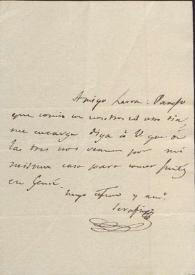 Amigo Larra: Pampo
que comía con nosotros el otro día
me encarga diga á V que á
las tres nos vemos por mi
misma casa para comer juntos
en Genié.
Suyo afmo y am.
Serafin